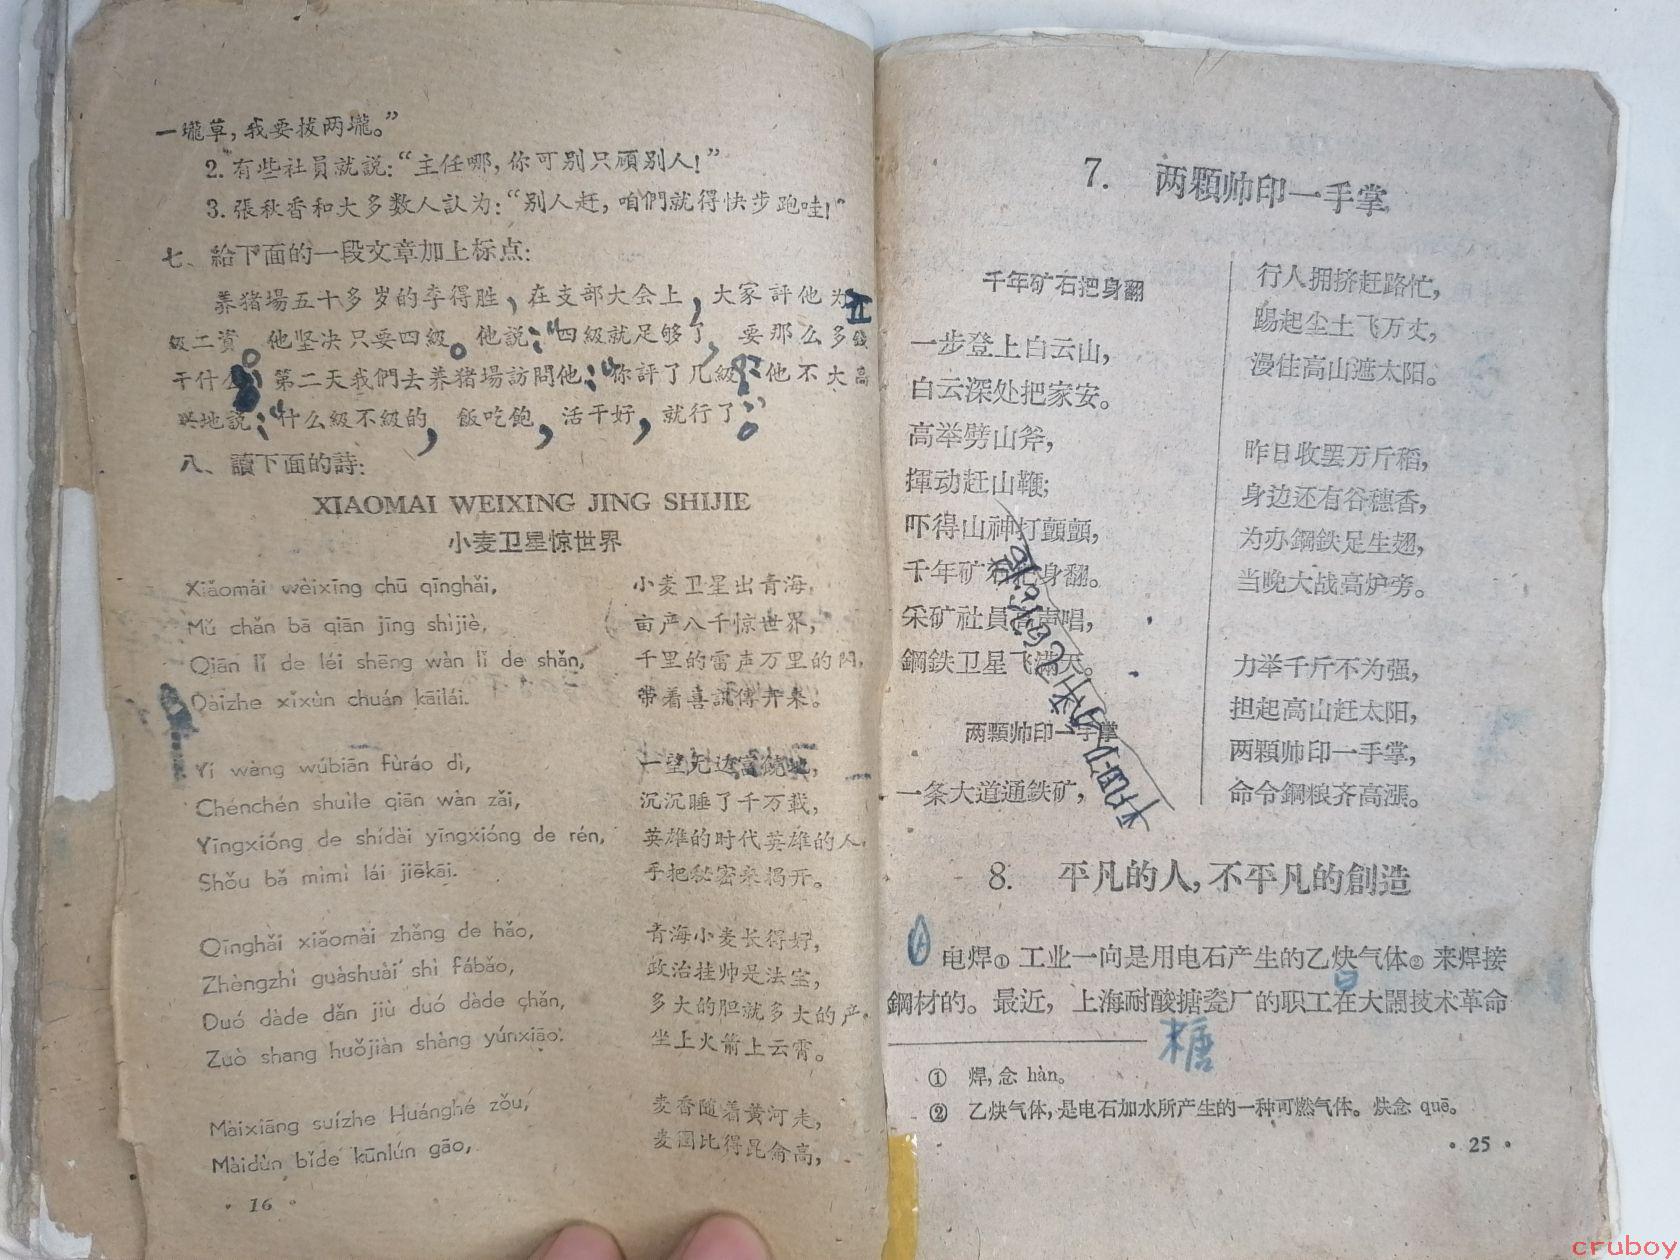 一壠草，我要拔两壠。”
2. 有些社員就說：“主任哪，你可別只顧別人！”
3. 張秋香和大多数人認为：“別人赶，咱們就得快步跑哇！”
七、給下面的一段文章加上标点：
养猪場五十多岁的李得胜，在支部大会上，大家評他为五
級二資。他坚决只要四級。他說：“四級就足够了，要那么多錢
干什么 第二天我們去养猪場訪問他：“你評了几級 他不大高
兴地說：“什么級不級的，飯吃飽，活干好，就行了”。
八、讀下面的詩：
XIAOMAI WEIXING JING SHIJIE
小麦卫星惊世界
Xiǎomài wèixīng chū qīnghǎi,
小麦卫星出青海，
Mǔ chǎn bā qiān jīng shìjiè,
亩产八千惊世界，
Qiān lǐ de léi shēng wàn lǐ de shǎn,
千里的雷声万里的闪，
Dàizhe xǐxùn chuán kāilái.
带着喜訊傳开来。
Yí wàng wúbiān fùráo dì,
一望无边富饒地，
Chénchén shuìle qiān wàn zǎi,
沉沉睡了千万載，
Yīngxióng de shídài yīngxióng de rén,
英雄的时代英雄的人，
Shǒu bǎ mìmì lái jiēkāi.
手把秘密来揭开。
Qīnghǎi xiǎomài zhǎng de hǎo,
青海小麦长得好，
Zhèngzhì guàshuài shì fǎbǎo,
政治挂帅是法宝，
Duó dàde dǎn jiù duó dàde chǎn,
多大的胆就多大的产，
Zuò shang huǒjiàn shàng yúnxiāo.
坐上火箭上云霄。
Màixiāng suízhe Huánghé zǒu,
麦香随着黄河走，
Màidùn bǐde kūnlún gāo,
麦囤比得昆侖高，
· 16 ·
7. 两顆帅印一手掌
千年矿石把身翻
一步登上白云山，
白云深处把家安。
高举劈山斧，
揮动赶山鞭；
吓得山神打顫顫，
千年矿石把身翻。
采矿社員高声唱，
鋼鉄卫星飞滿天。
两顆帅印一手掌
一条大道通鉄矿，
行人拥挤赶路忙，
踢起尘土飞万丈，
漫住高山遮太阳。
昨日收罢万斤稻，
身边还有谷穗香，
为办鋼鉄足生翅，
当晚大战高炉旁。
力举千斤不为强，
担起高山赶太阳，
两顆帅印一手掌，
命令鋼粮齐高漲。
8. 平凡的人，不平凡的創造
电焊① 工业一向是用电石产生的乙炔气体② 来焊接
鋼材的。最近，上海耐酸搪瓷厂的职工在大鬧技术革命
糖
① 焊，念 hàn。
② 乙炔气体，是电石加水所产生的一种可燃气体。炔念 quē。
· 25 ·
cruboy